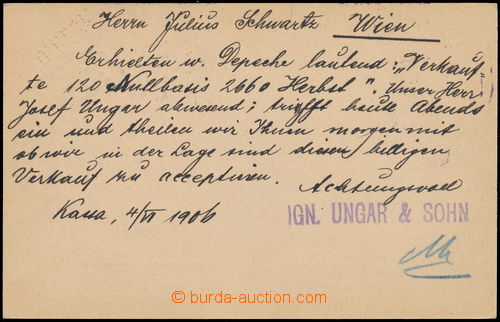 Herrn Julius Schwartz Wien
Erhielten w. Depeche lautend: „Verkauf
te 120 Nullbasis 2660 Herbst". Unser Herr
Josef Ungar abwesend; trifft heute Abends
ein und theilen wir Ihnen morgen mit
ob wir in der Lage sind diesen billigen
Verkauf zu acceptiren.
Achtungsvoll
Kassa, 4/VI 1906
IGN. UNGAR & SOHN
© burda-auction.com